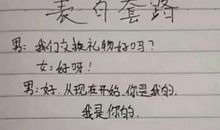 表白套路
男：我们交换礼物好吗？
女：好呀！
男：好．从现在开始．你是我的．
我是你的．